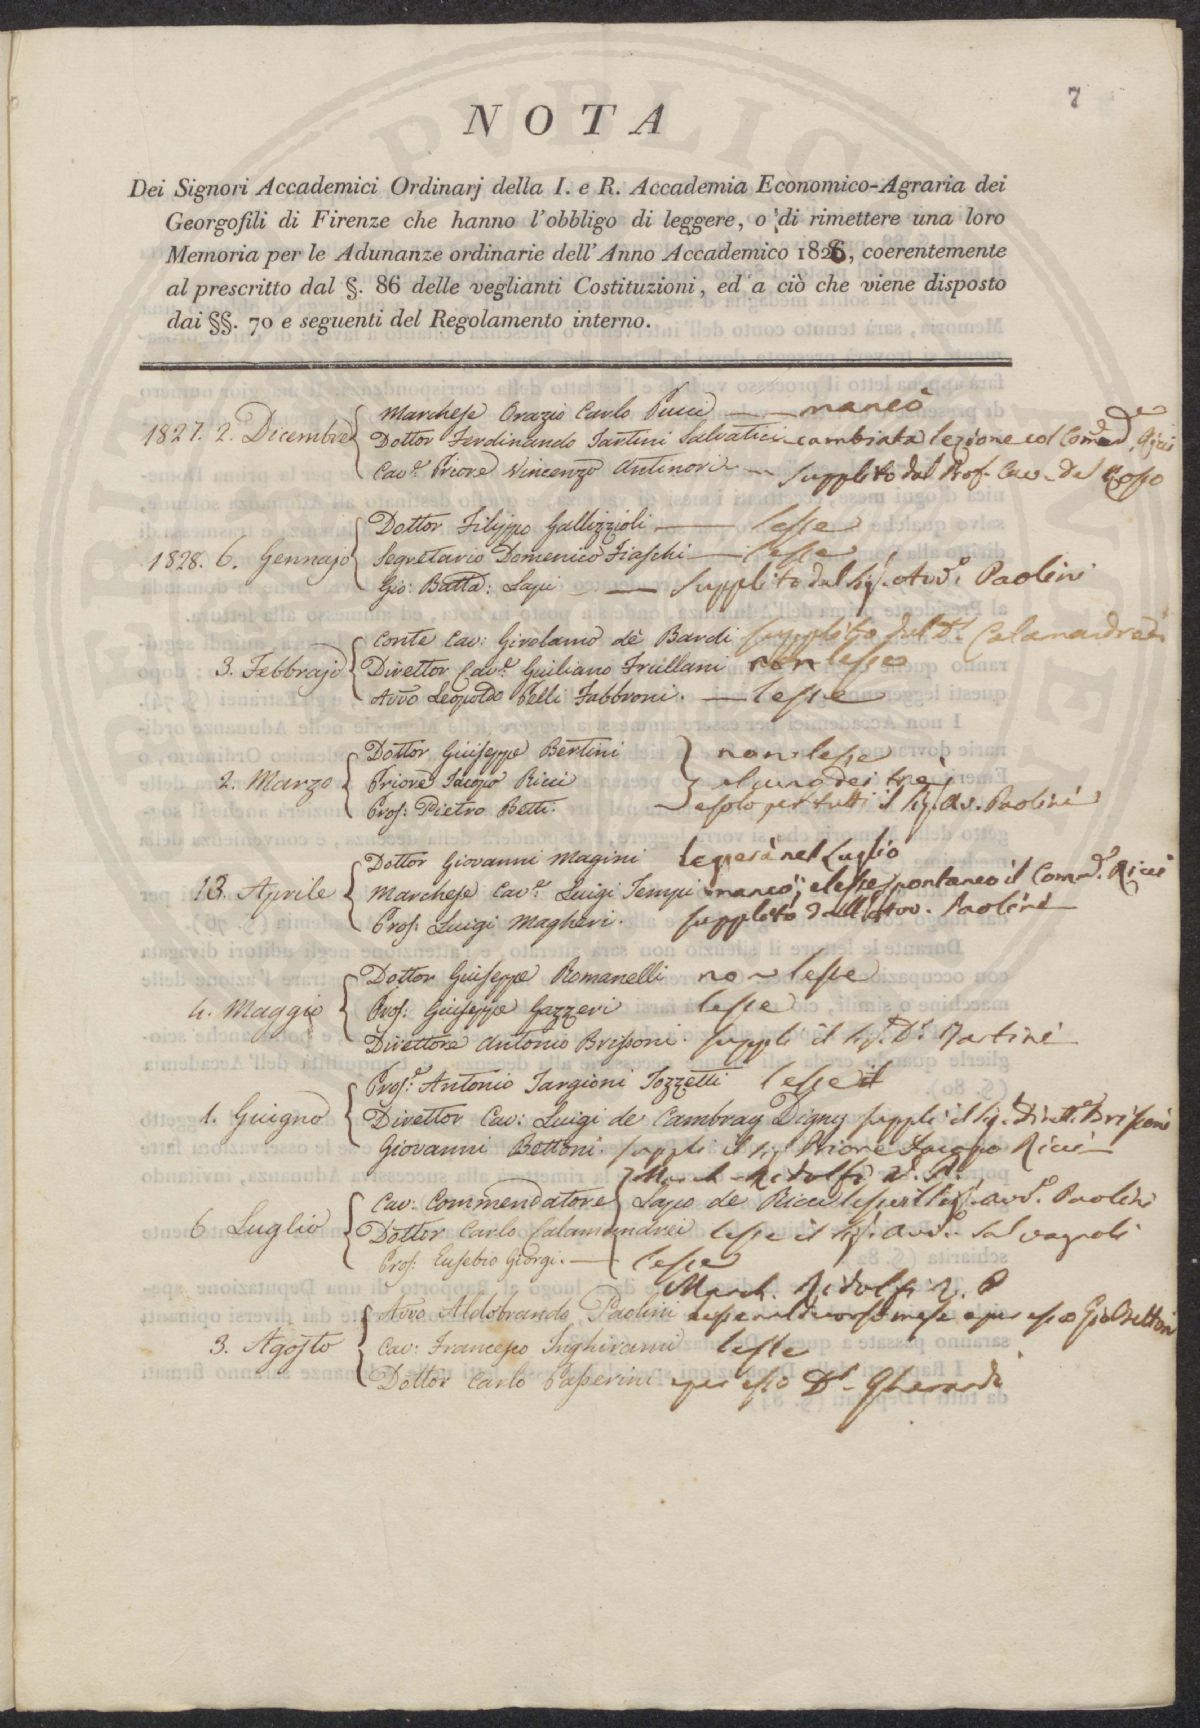 7
NOTA
Dei Signori Accademici Ordinarj della I. e R. Accademia Economico-Agraria dei
Georgofili di Firenze che hanno l'obbligo di leggere, o di rimettere una loro
Memoria per le Adunanze ordinarie dell'Anno Accademico 1828, coerentemente
al prescritto dal §. 86 delle veglianti Costituzioni, ed a ciò che viene disposto
dai §§. 70 e seguenti del Regolamento interno.
Marchese Orazio Carlo Pucci — mancò
1827. 2. Dicembre Dottor Ferdinando Tartini Salvatici cambiata lezione col
Cav.e Priore Vincenzo Antinori — supplito dal Prof. Cav. Del Rosso
Dottor Filippo Gallizzioli — lesse
1828. 6. Gennajo Segretario Domenico Fiaschi — lesse
Gio: Batta: Lapi — supplito dal Sig. Avv.o Paolini
Conte Cav: Girolamo de' Bardi supplito dal D.r Calamandrei
3. Febbrajo Direttor Cav.e Giuliano Frullani non lesse
Avvo Leopoldo Pelli Fabbroni. — lesse
Dottor Giuseppe Bertini non lesse
2. Marzo Priore Jacopo Ricci alcuno dei tre,
Prof: Pietro Betti. e solo per tutti il Sig. Av. Paolini
Dottor Giovanni Magini leggerà nel Luglio
13. Aprile Marchese Cav.e Luigi Tempi mancò; e lesse spontaneo il Comm.e Ricci
Prof: Luigi Magheri. supplito dall'Avv. Paolini
Dottor Giuseppe Romanelli non lesse
4. Maggio Prof: Giuseppe Gazzeri lesse
Direttore Antonio Brissoni. supplì il Sig. D.r Tartini
Prof.e Antonio Targioni Tozzetti lesse
1. Giugno Direttor Cav: Luigi de Cambray Digny supplì il Sig. Dirett.e Brissoni
Giovanni Bettoni. supplì il Sig. Priore Jacopo Ricci
March. Ridolfi
Cav: Commendatore Lapo de Ricci lesse il Sig. Avv.o Paolini
6. Luglio Dottor Carlo Calamandrei lesse il Sig. Avv.o Salvagnoli
Prof: Eusebio Giorgi. — lesse
March. Ridolfi
Avvo Aldobrando Paolini lesse nel decorso mese e per esso Gio Bettoni
3. Agosto Cav: Francesco Inghirami lesse
Dottor Carlo Passerini e per esso D.r Gherardi